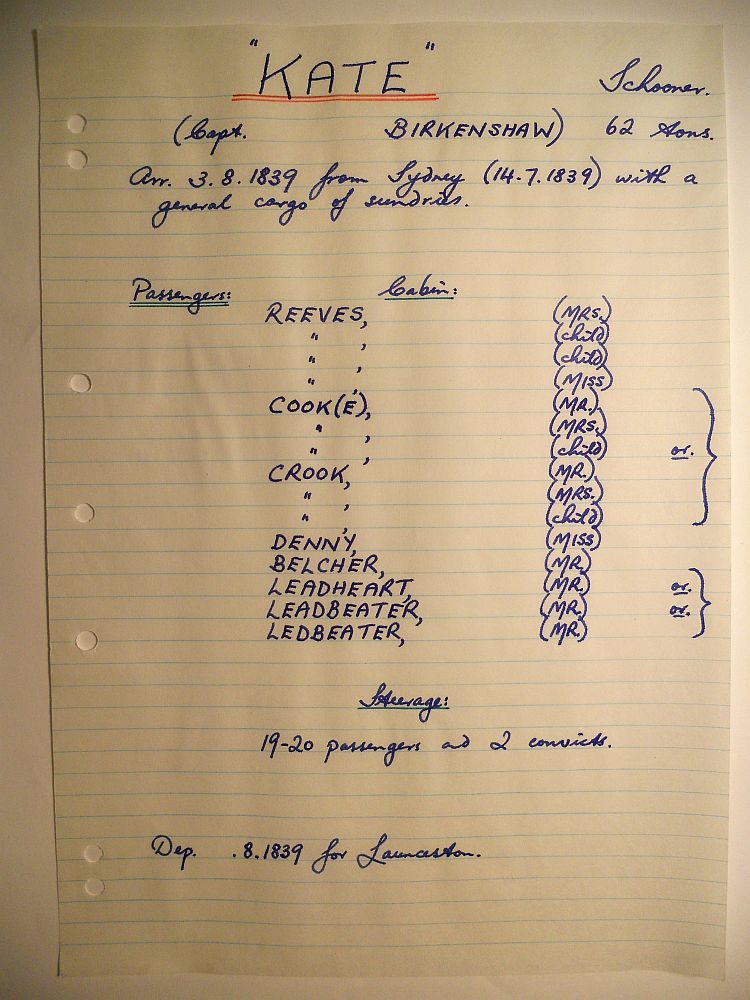 "KATE" Schooner.
(Capt. BIRKENSHAW) 62 tons.
Arr. 3.8.1839 from Sydney (14.7.1839) with a
general cargo of sundries.
Passengers: Cabin:
REEVES, (MRS.)
" , (child)
" , (child)
" , (MISS)
COOK(E), (MR.)
" , (MRS.)
" , (child) or.
CROOK, (MR.)
" , (MRS.)
" , (child)
DENNY, (MISS)
BELCHER, (MR.)
LEADHEART, (MR.) or.
LEADBEATER, (MR.) or.
LEDBEATER, (MR.)
Steerage:
19-20 passengers and 2 convicts.
Dep. .8.1839 for Launceston.